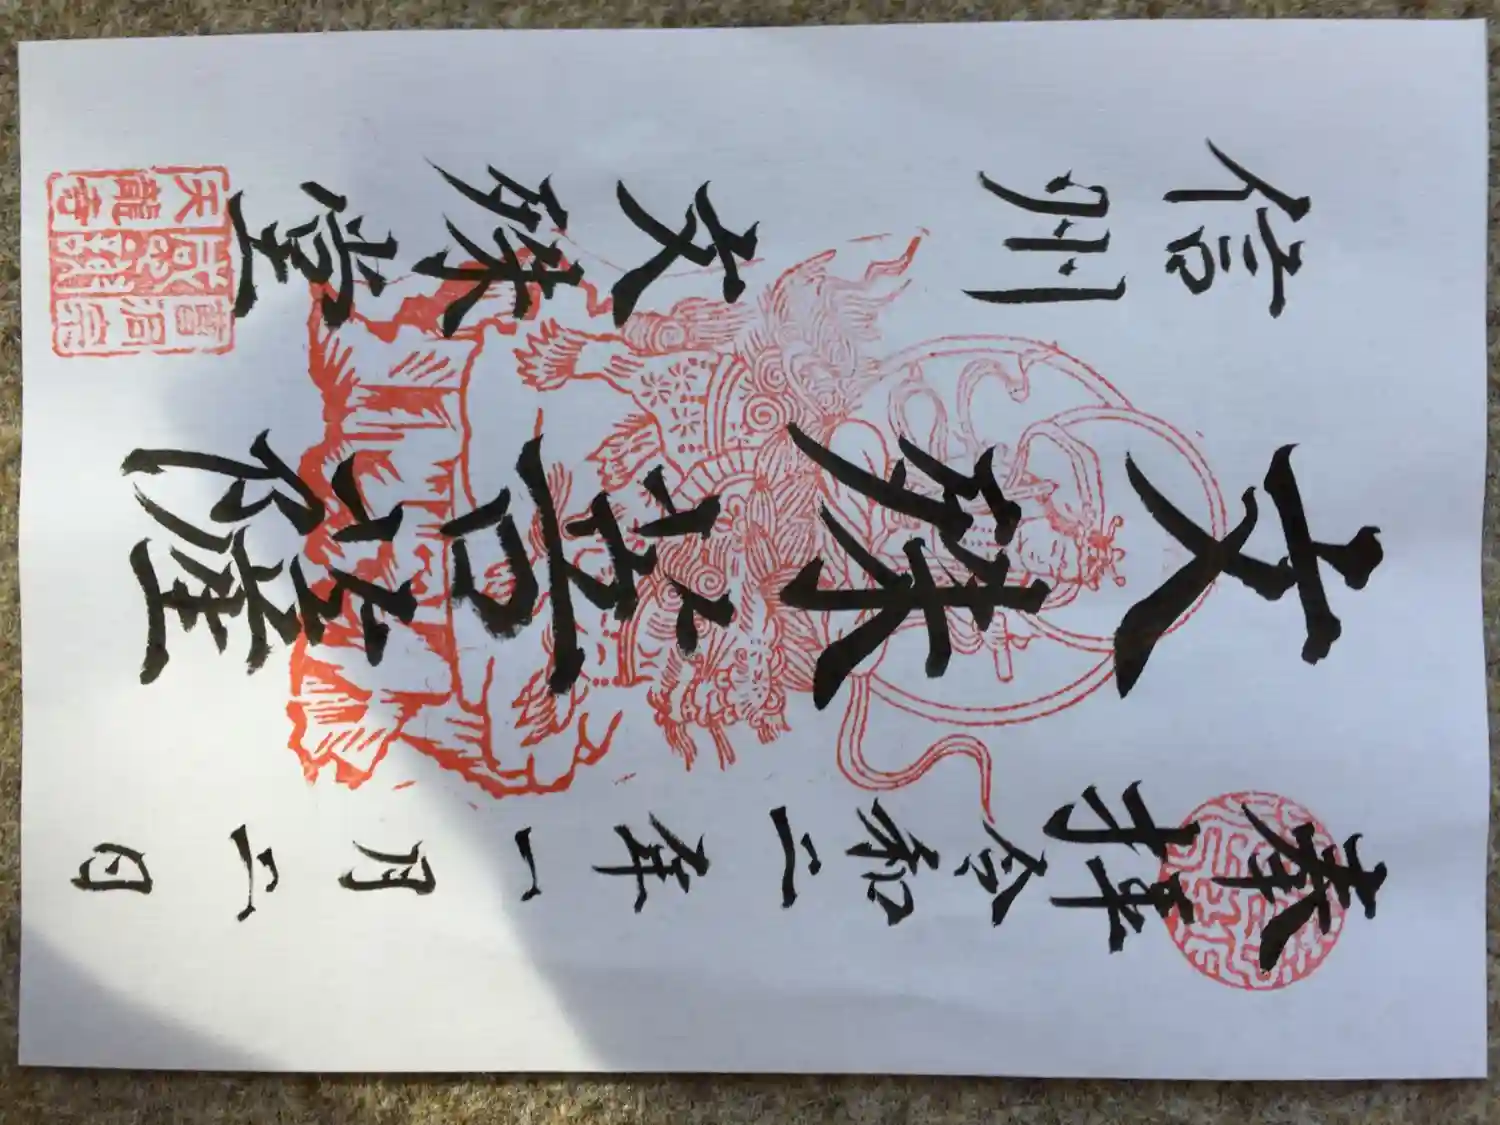 奉拝 令和二年一月二日
文殊菩薩
信州 文殊堂
曹洞宗
天龍寺